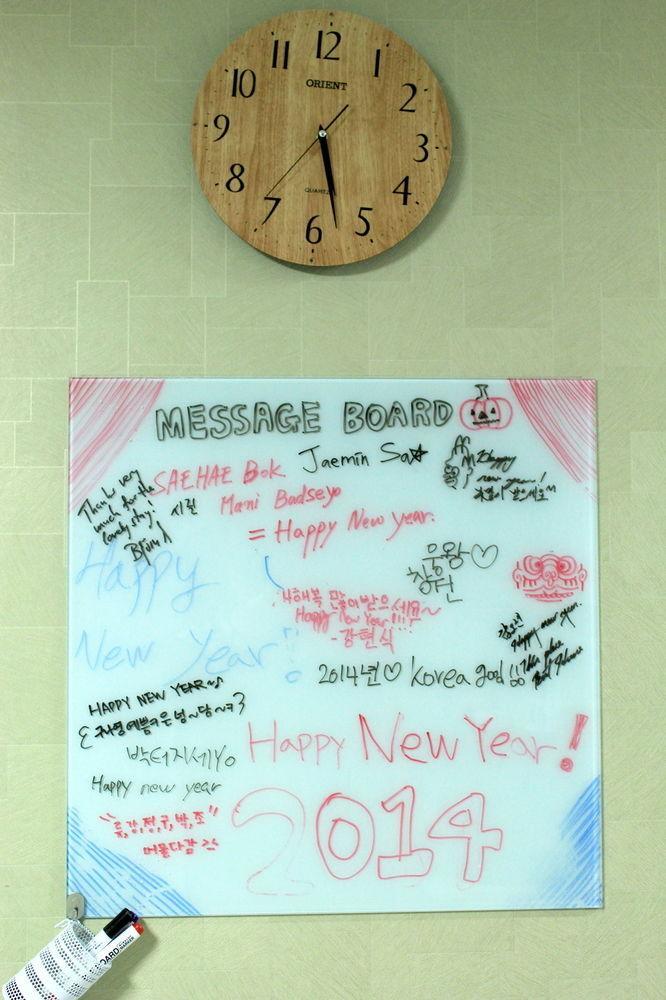 12
11
1
10
ORIENT
2
9
3
8
QUARTZ
4
7
5
6
MESSAGE BOARD
Jaemin Sa
SAEHAE Bok
Mani Badseyo
= Happy New year.
Thank very
much for the
lovely stay!
Happy
new year!
웅왕♡
창원
Happy
New Year!!
새해복 많이받으세요~
Happy New Year!!!
-강현식
Happy new year.
2014년♡ Korea good
HAPPY NEW YEAR~♪
박터지세Yo
Happy New Year!
Happy new year
2014
"류,강,정,구,박,조"
머물다감
BOARD
MARKER